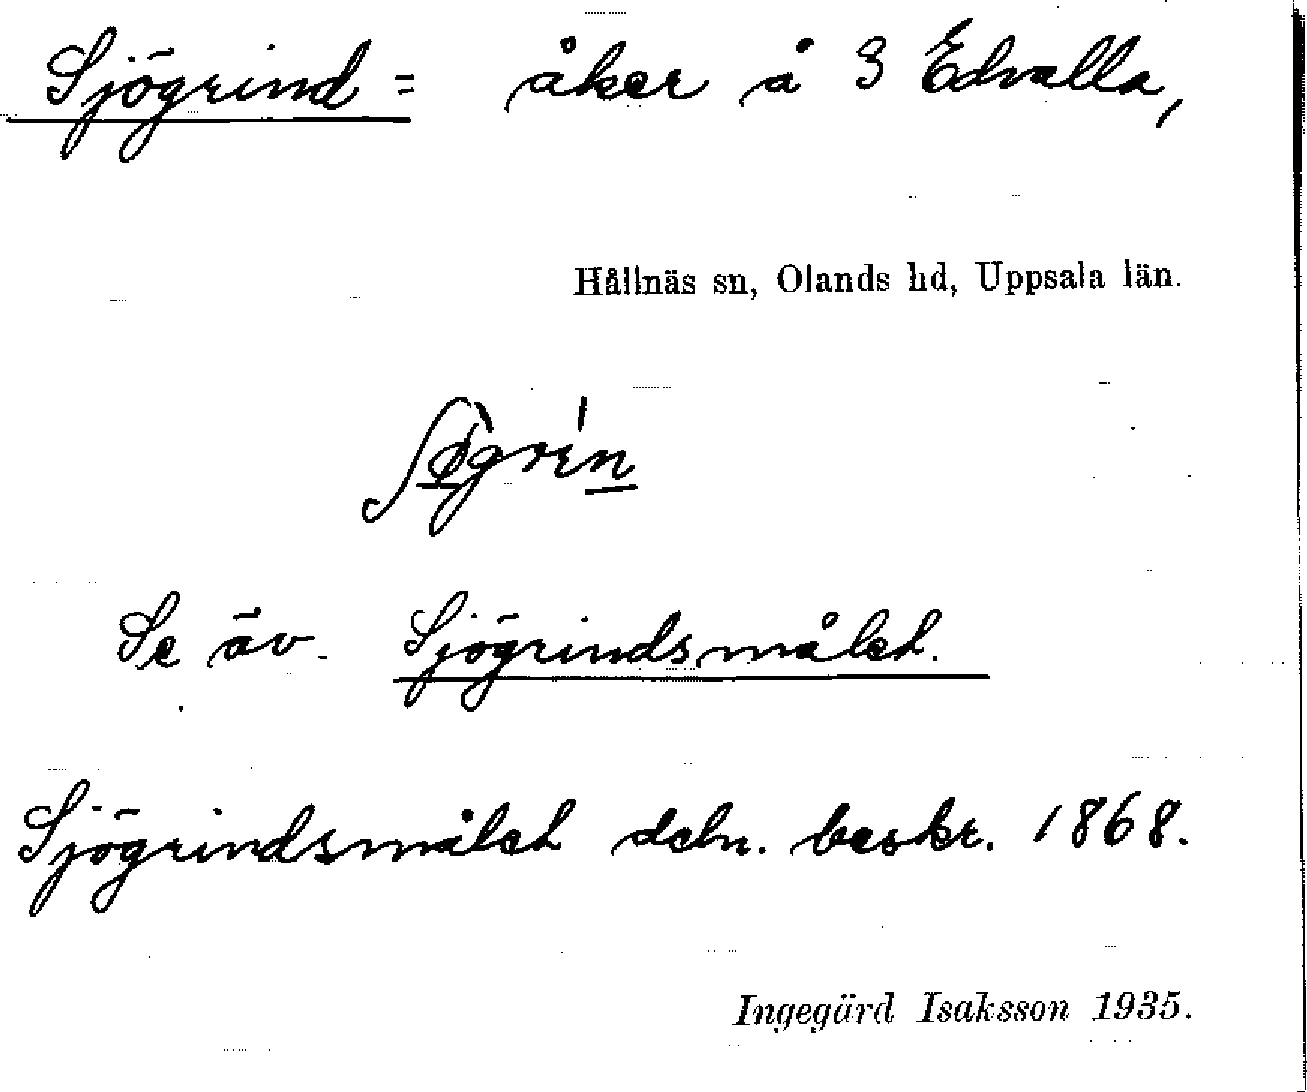 Sjögrind = åker å 3 Edvalla,
Hållnäs sn, Olands hd, Uppsala län.
Se äv. Sjögrindsmålet.
Sjögrindsmålet deln. beskr. 1868.
Ingegärd Isaksson 1935.